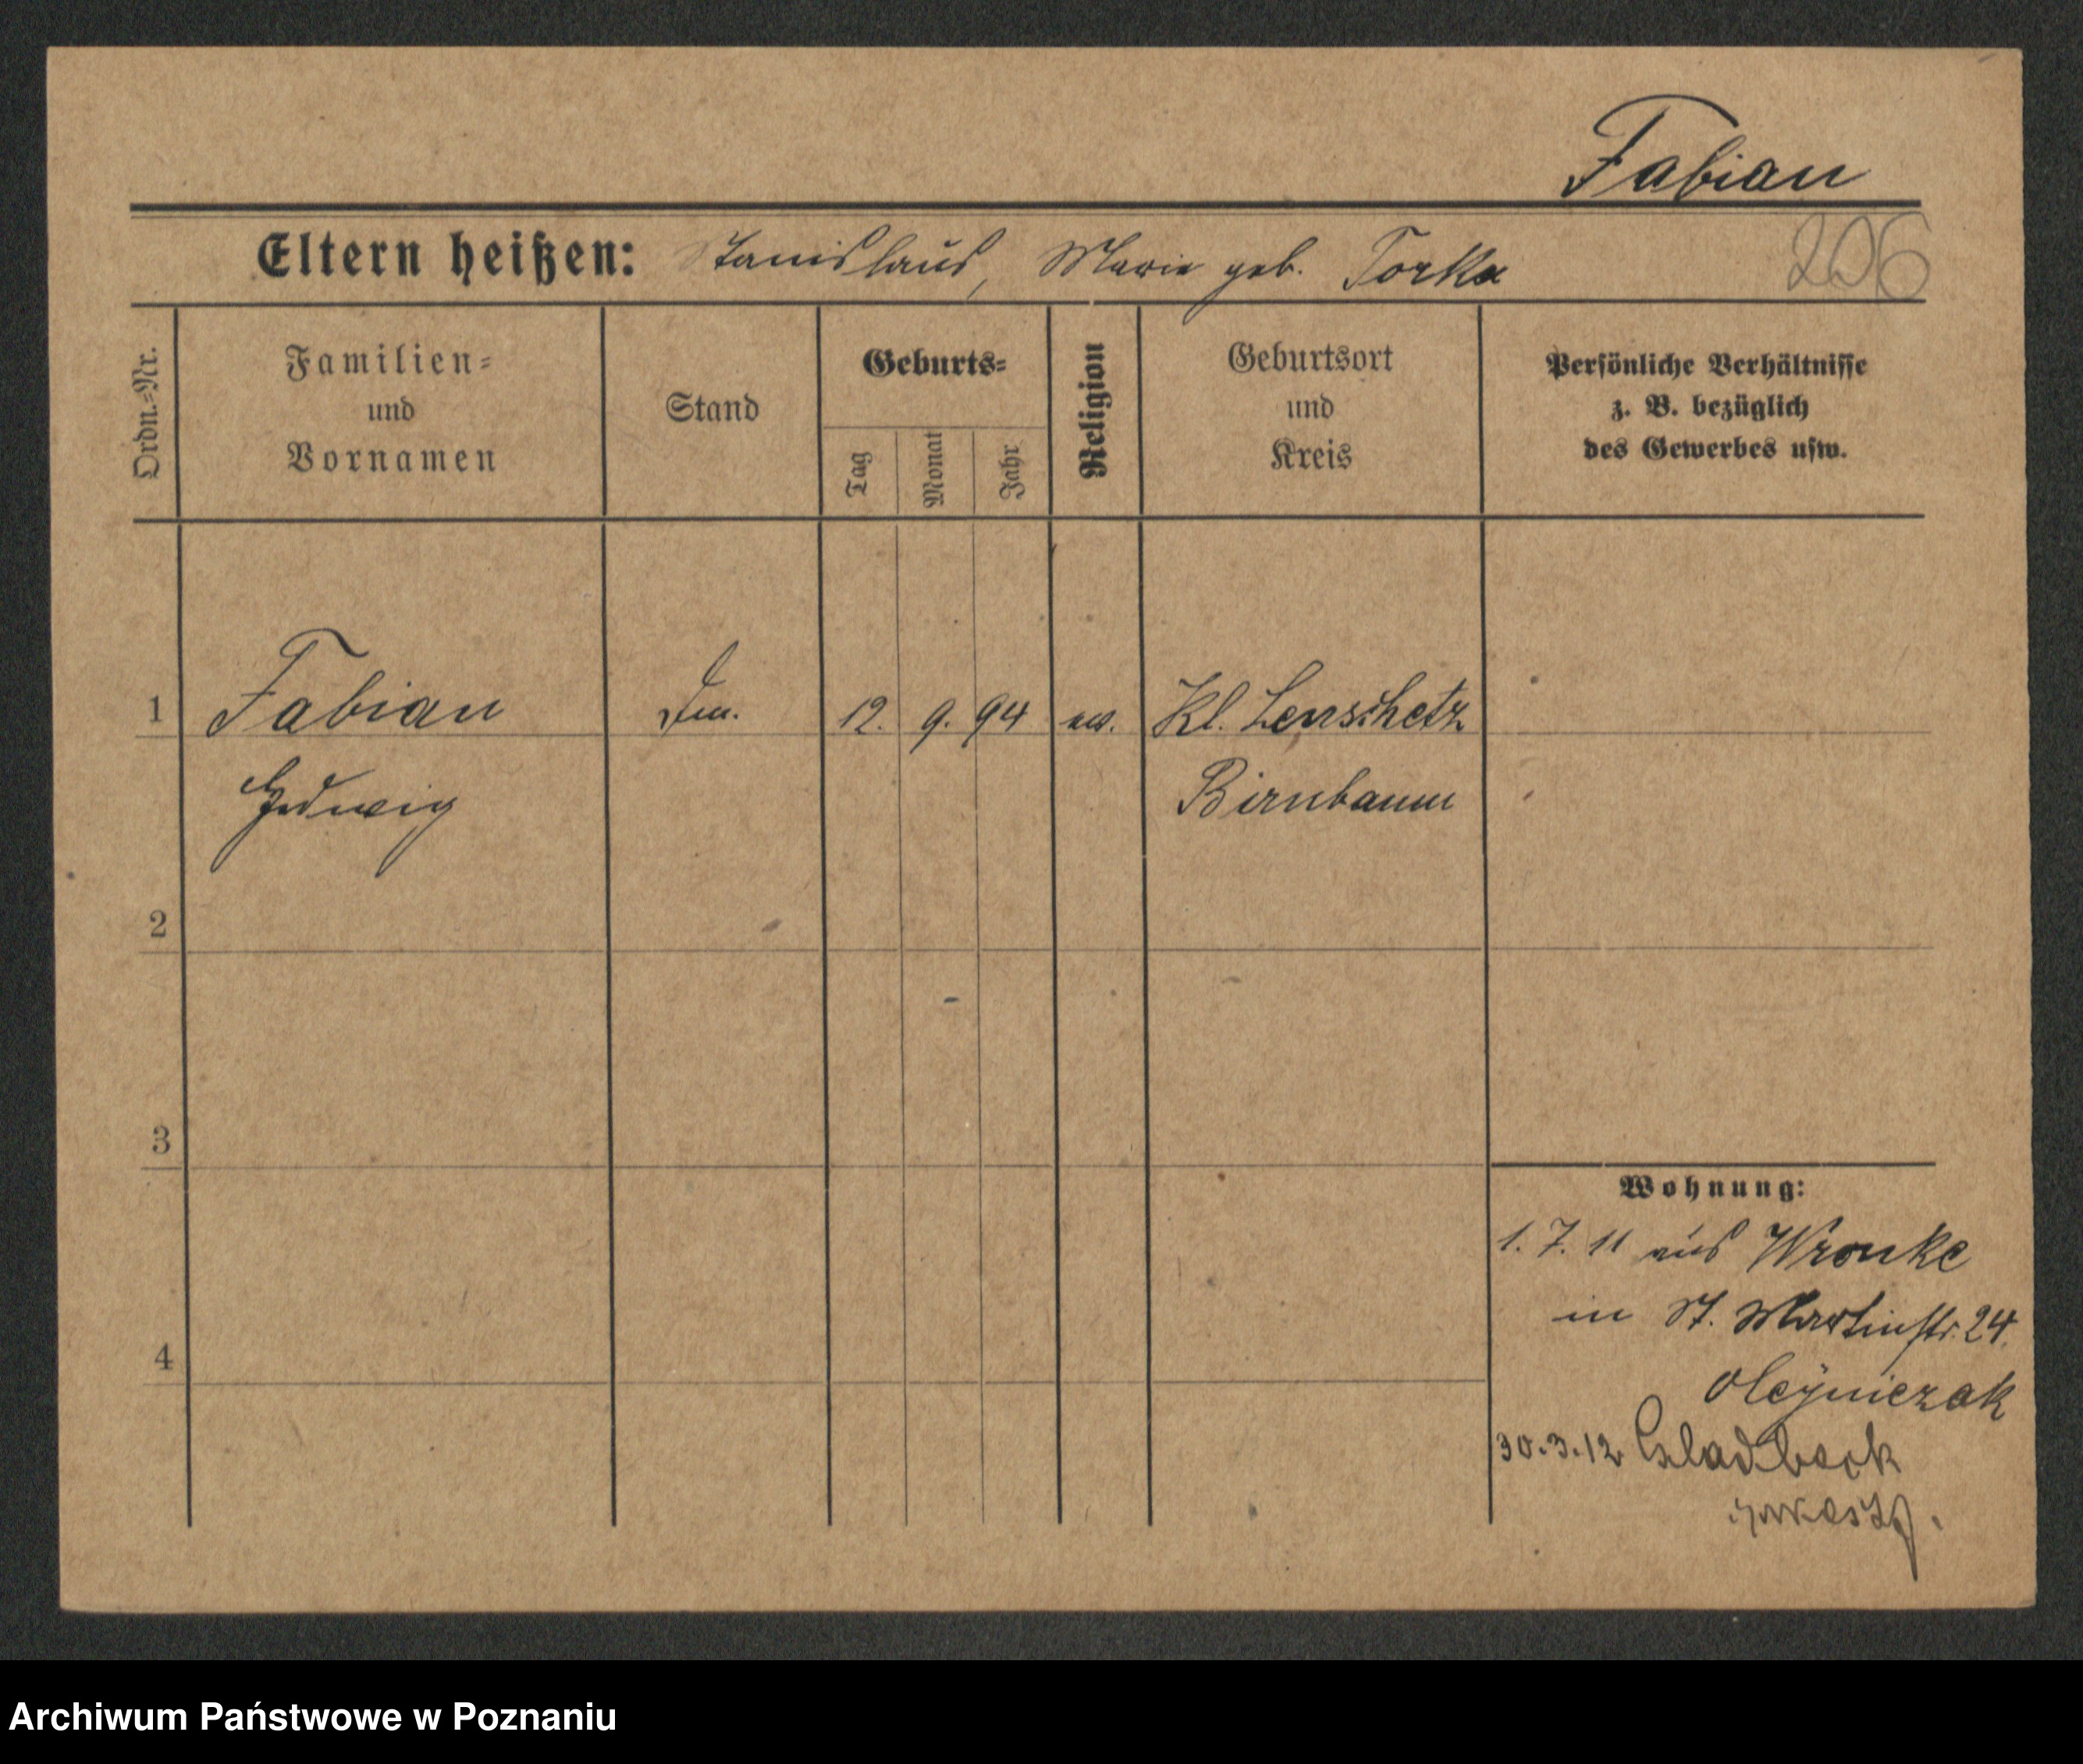 Fabian
Eltern heißen: Stanislaus, Marie geb. Torka
206
Ordn.-Nr.
Familien-
und
Vornamen
Stand
Geburts-
Tag
Monat
Jahr
Religion
Geburtsort
und
Kreis
Persönliche Verhältnisse
z. B. bezüglich
des Gewerbes usw.
1 Fabian 12. 9. 94 Kl. Lenschetz
Hedwig Birnbaum
2
3
4
Wohnung:
1. 7. 11 aus Wronke
in St. Martinstr. 24.
Olejniczak
30.3.12 Gladbeck
Archiwum Państwowe w Poznaniu